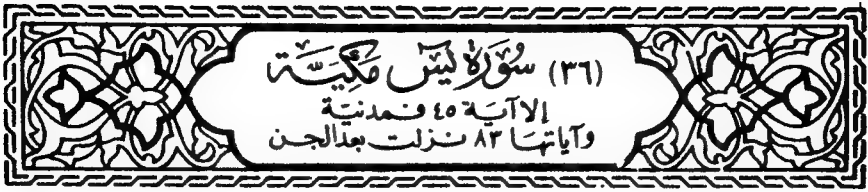 (٣٦) سُورَة يسٓ مَكِيَّة
إلا آية ٤٥ فمدنية
وآياتها ٨٣ نزلت بعد الجن